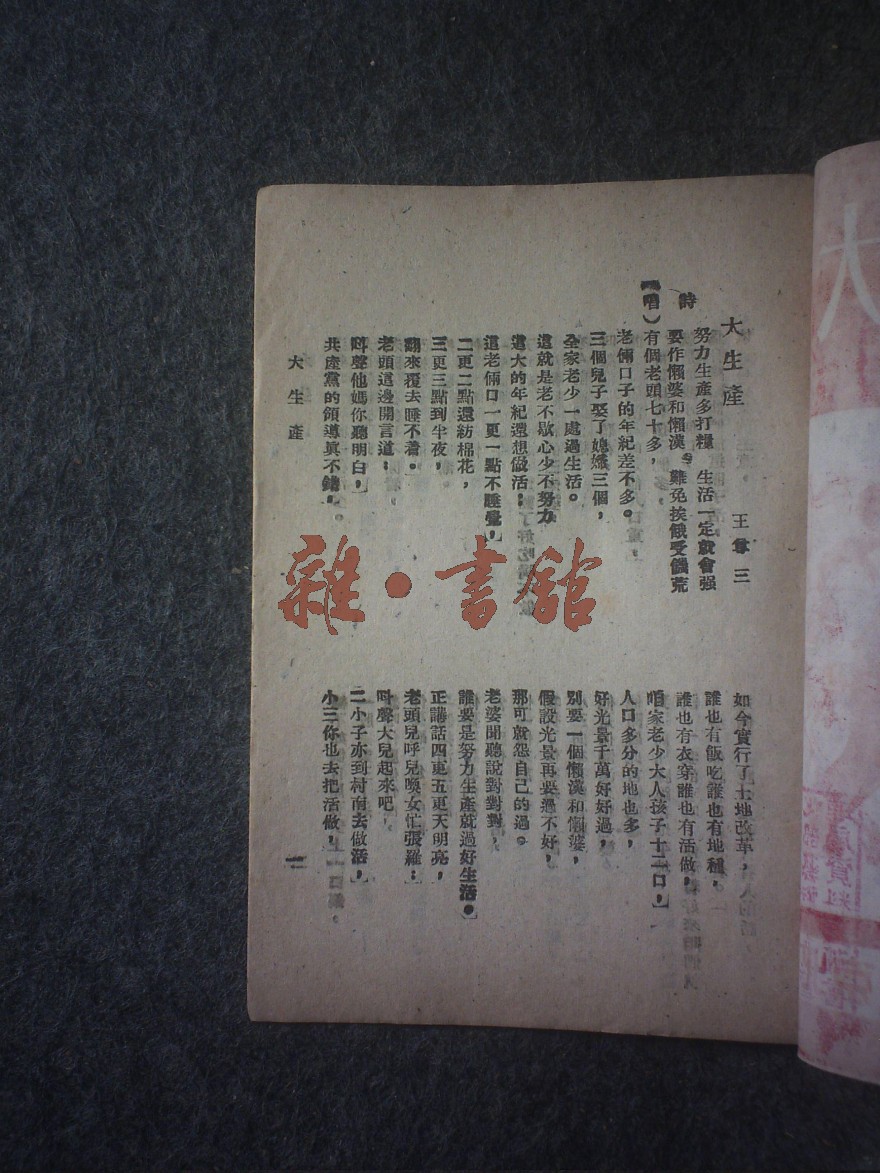 大生產
王尊三
詩
努力生產多打糧，生活一定就會强
要作懶婆和懶漢，難免挨餓受饑荒
（唱）有個老頭七十多，
老倆口子的年紀差不多。
三個兒子娶了媳婦三個，
全家老少一處過生活。
這就是老不歇心少不努力
這大的年紀還想做活；
這老倆口一更一點不睡覺，
二更二點還紡棉花，
三更三點到半夜，
翻來覆去睡不着。
老頭這邊開言道：
叫聲他媽你聽明白，
共產黨的領導眞不錯，
如今實行了土地改革，
誰也有飯吃誰也有地種，
誰也有衣穿誰也有活做，
咱家老少大人孩子十二口，
人口多分的地也多，
好光景千萬好好過，
別要一個懶漢和懶婆，
假設光景再要過不好，
那可就怨自己的過。
老婆開聽說對對對，
誰要是努力生產就過好生活。
正講話四更五更天明亮，
老頭兒呼兒喚女忙張羅：
叫聲大兒起來吧，
二小子亦到村南去做活，
小三你也去把活做，
大生產
一
雜·書館
大